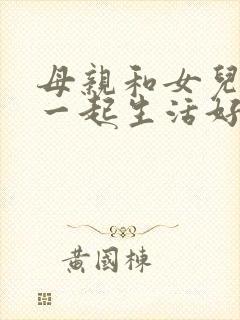 母親和女兒
一起生活好
黃國棟